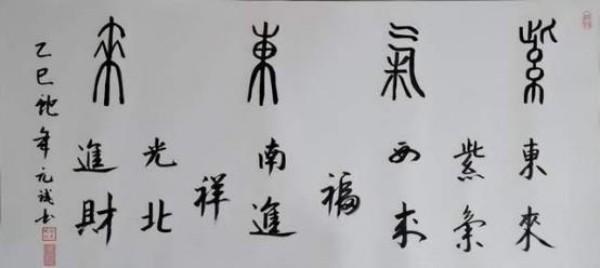 紫氣東來
東來
紫氣
西来
福
南進
祥
光北
進財
乙巳蛇年元书